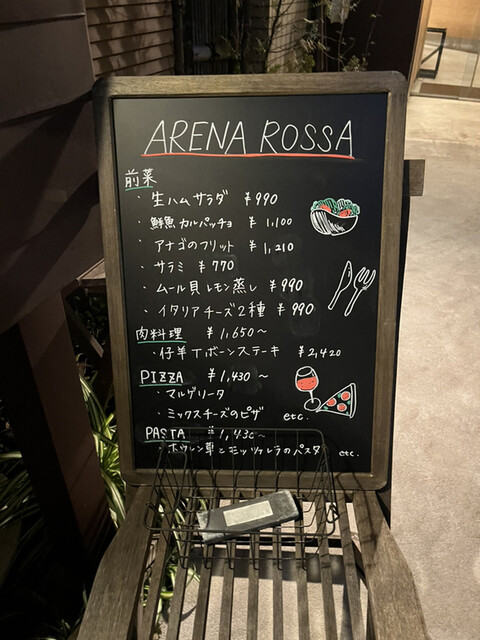 ARENA ROSSA
前菜
・生ハムサラダ ¥990
・鮮魚カルパッチョ ¥1,100
・アナゴのフリット ¥1,210
・サラミ ¥770
・ムール貝レモン蒸し ¥990
・イタリアチーズ2種 ¥990
肉料理 ¥1,650〜
・仔羊Tボーンステーキ ¥2,420
PIZZA ¥1,430〜
・マルゲリータ
・ミックスチーズのピザ etc.
PASTA ¥1,430〜
・ホウレン草とモッツァレラのパスタ etc.